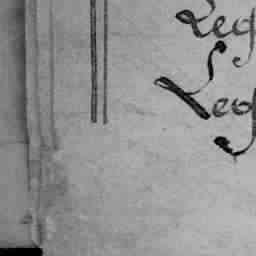 Leg
Leg